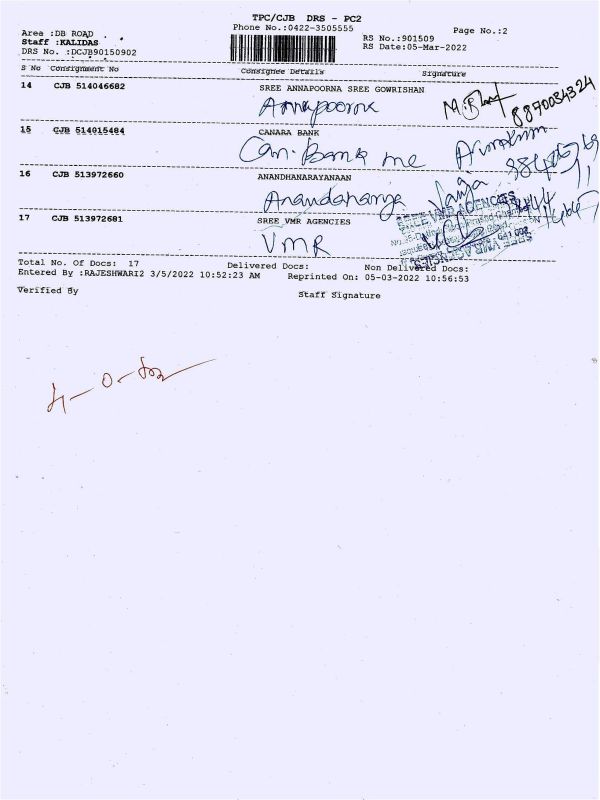 TPC/CJB DRS - PC2
Area :DB ROAD Phone No.:0422-3505555 Page No.:2
Staff :KALIDAS RS No.:901509
DRS No. :DCJB90150902 RS Date:05-Mar-2022
S No Consignment No Consignee Details Signature
14 CJB 514046682 SREE ANNAPOORNA SREE GOWRISHAN
Annapoorna
15 CJB 514015484 CANARA BANK
Can. Bank me
16 CJB 513972660 ANANDHANARAYANAAN
17 CJB 513972681 SREE VMR AGENCIES
VMR
SREE VMR AGENCIES
Total No. Of Docs: 17 Delivered Docs: Non Delivered Docs:
Entered By :RAJESHWARI2 3/5/2022 10:52:23 AM Reprinted On: 05-03-2022 10:56:53
Verified By Staff Signature